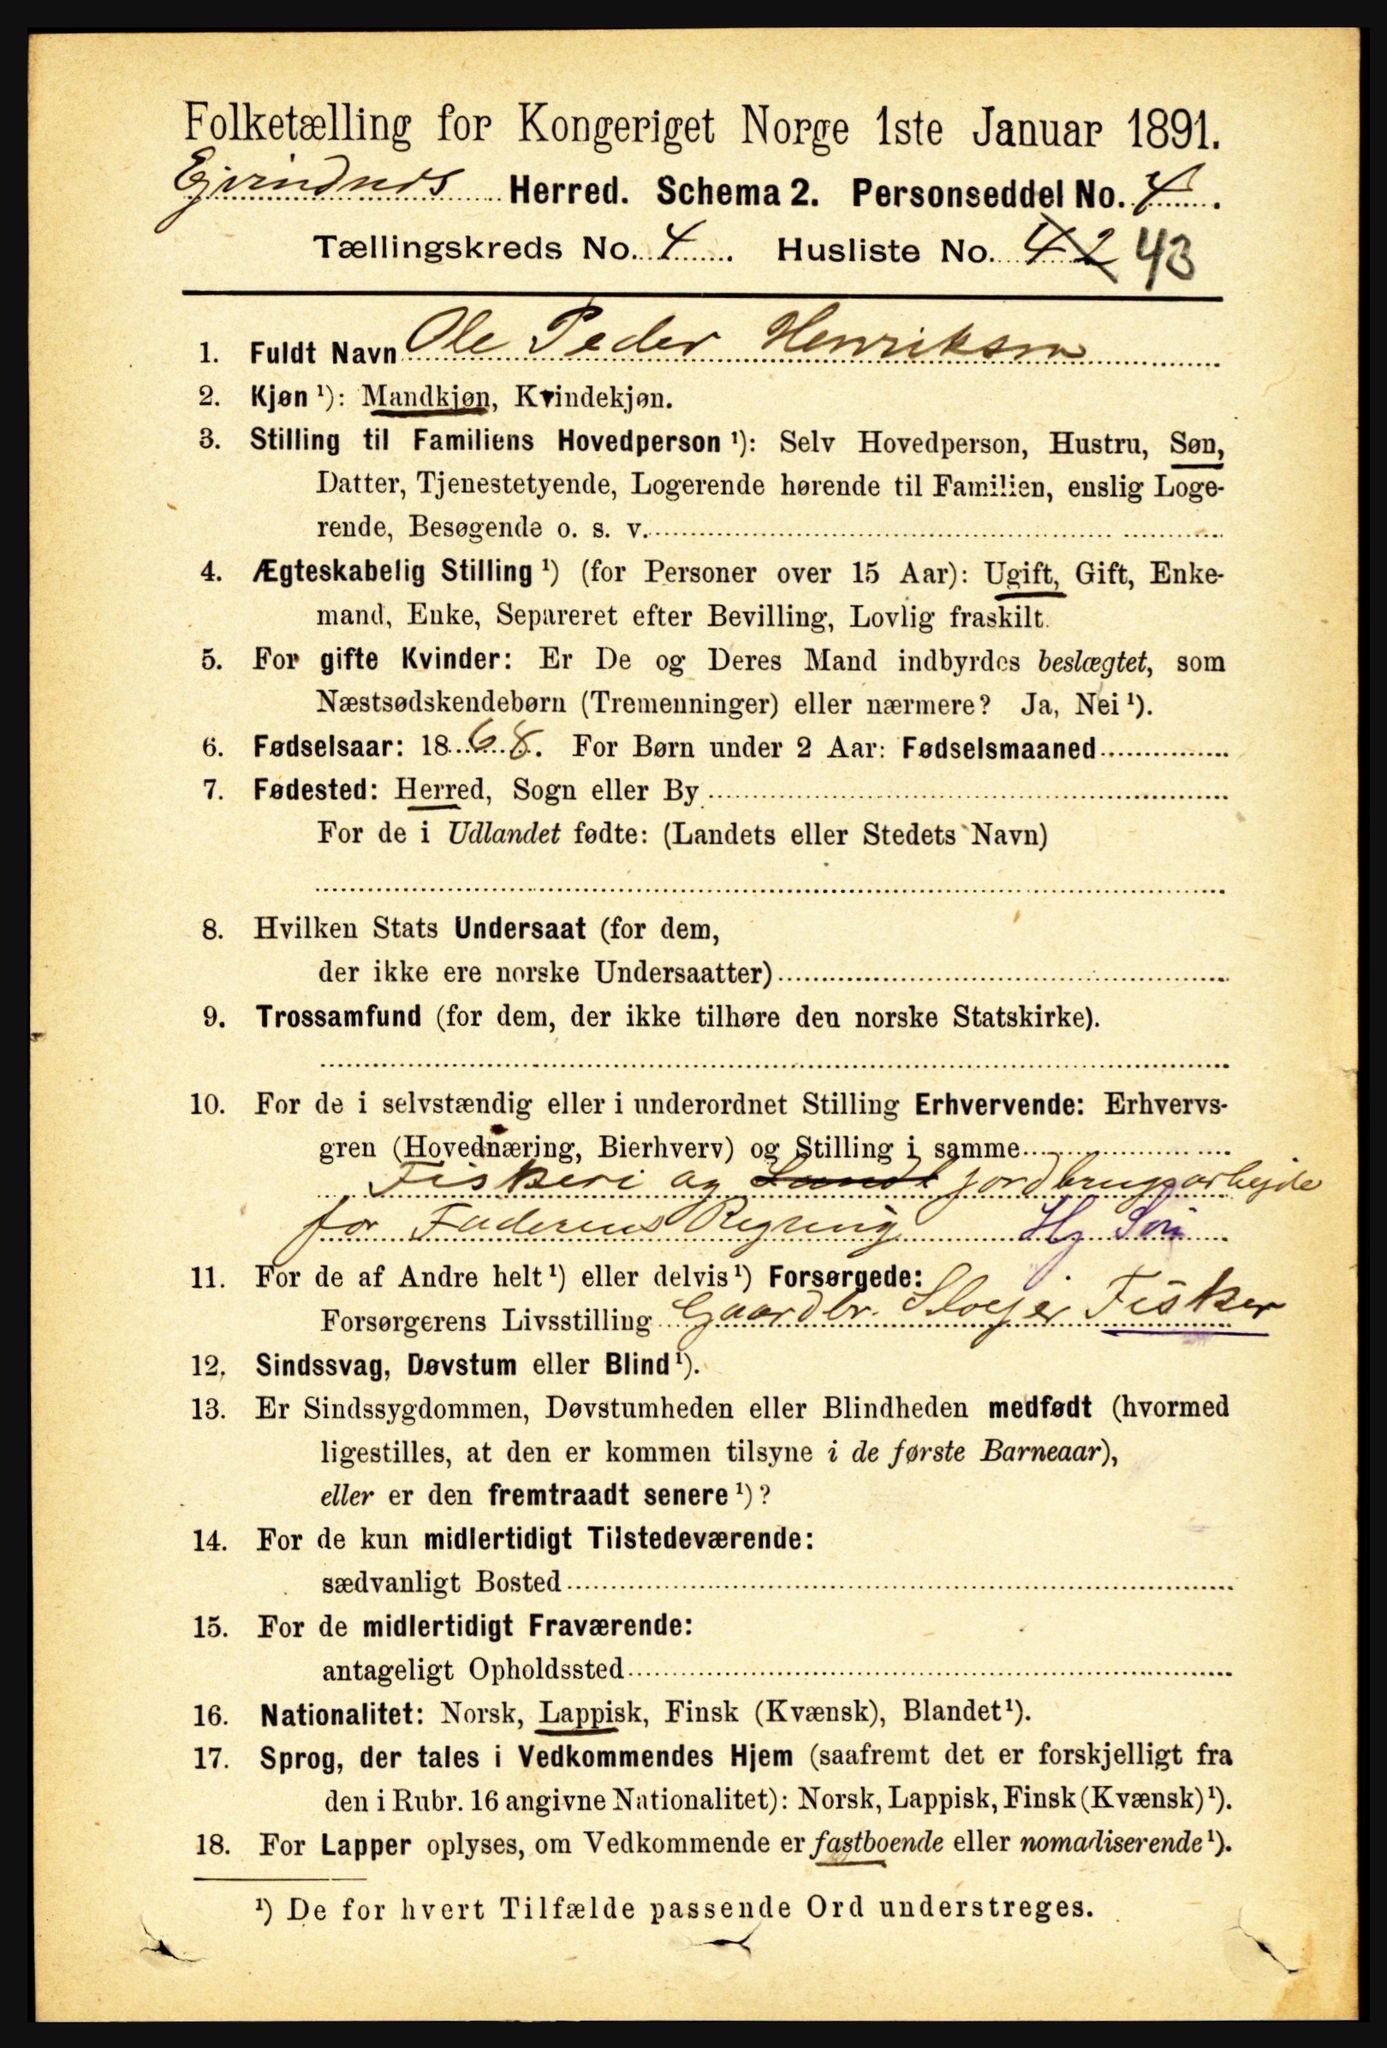 Folketælling for Kongeriget Norge 1ste Januar 1891.
Ejvindnes Herred. Schema 2. Personseddel No. 4.
Tællingskreds No. 4. Husliste No. 42 43
1. Fuldt Navn Ole Peder Henriksen
2. Kjøn ¹): Mandkjøn, Kvindekjøn.
3. Stilling til Familiens Hovedperson ¹): Selv Hovedperson, Hustru, Søn,
Datter, Tjenestetyende, Logerende hørende til Familien, enslig Loge-
rende, Besøgende o. s. v.
4. Ægteskabelig Stilling ¹) (for Personer over 15 Aar): Ugift, Gift, Enke-
mand, Enke, Separeret efter Bevilling, Lovlig fraskilt.
5. For gifte Kvinder: Er De og Deres Mand indbyrdes beslægtet, som
Næstsødskendebørn (Tremenninger) eller nærmere? Ja, Nei ¹).
6. Fødselsaar: 1868. For Børn under 2 Aar: Fødselsmaaned
7. Fødested: Herred, Sogn eller By
For de i Udlandet fødte: (Landets eller Stedets Navn)
8. Hvilken Stats Undersaat (for dem,
der ikke ere norske Undersaatter)
9. Trossamfund (for dem, der ikke tilhøre den norske Statskirke).
10. For de i selvstændig eller i underordnet Stilling Erhvervende: Erhvervs-
gren (Hovednæring, Bierhverv) og Stilling i samme
Fiskeri og Landt jordbrugsarbejde
for Faderens Regning Hj Søn
11. For de af Andre helt ¹) eller delvis ¹) Forsørgede:
Forsørgerens Livsstilling Gaardbr. Slojer Fisker
12. Sindssvag, Døvstum eller Blind ¹).
13. Er Sindssygdommen, Døvstumheden eller Blindheden medfødt (hvormed
ligestilles, at den er kommen tilsyne i de første Barneaar),
eller er den fremtraadt senere ¹)?
14. For de kun midlertidigt Tilstedeværende:
sædvanligt Bosted
15. For de midlertidigt Fraværende:
antageligt Opholdssted
16. Nationalitet: Norsk, Lappisk, Finsk (Kvænsk), Blandet ¹).
17. Sprog, der tales i Vedkommendes Hjem (saafremt det er forskjelligt fra
den i Rubr. 16 angivne Nationalitet): Norsk, Lappisk, Finsk (Kvænsk) ¹).
18. For Lapper oplyses, om Vedkommende er fastboende eller nomadiserende ¹).
¹) De for hvert Tilfælde passende Ord understreges.